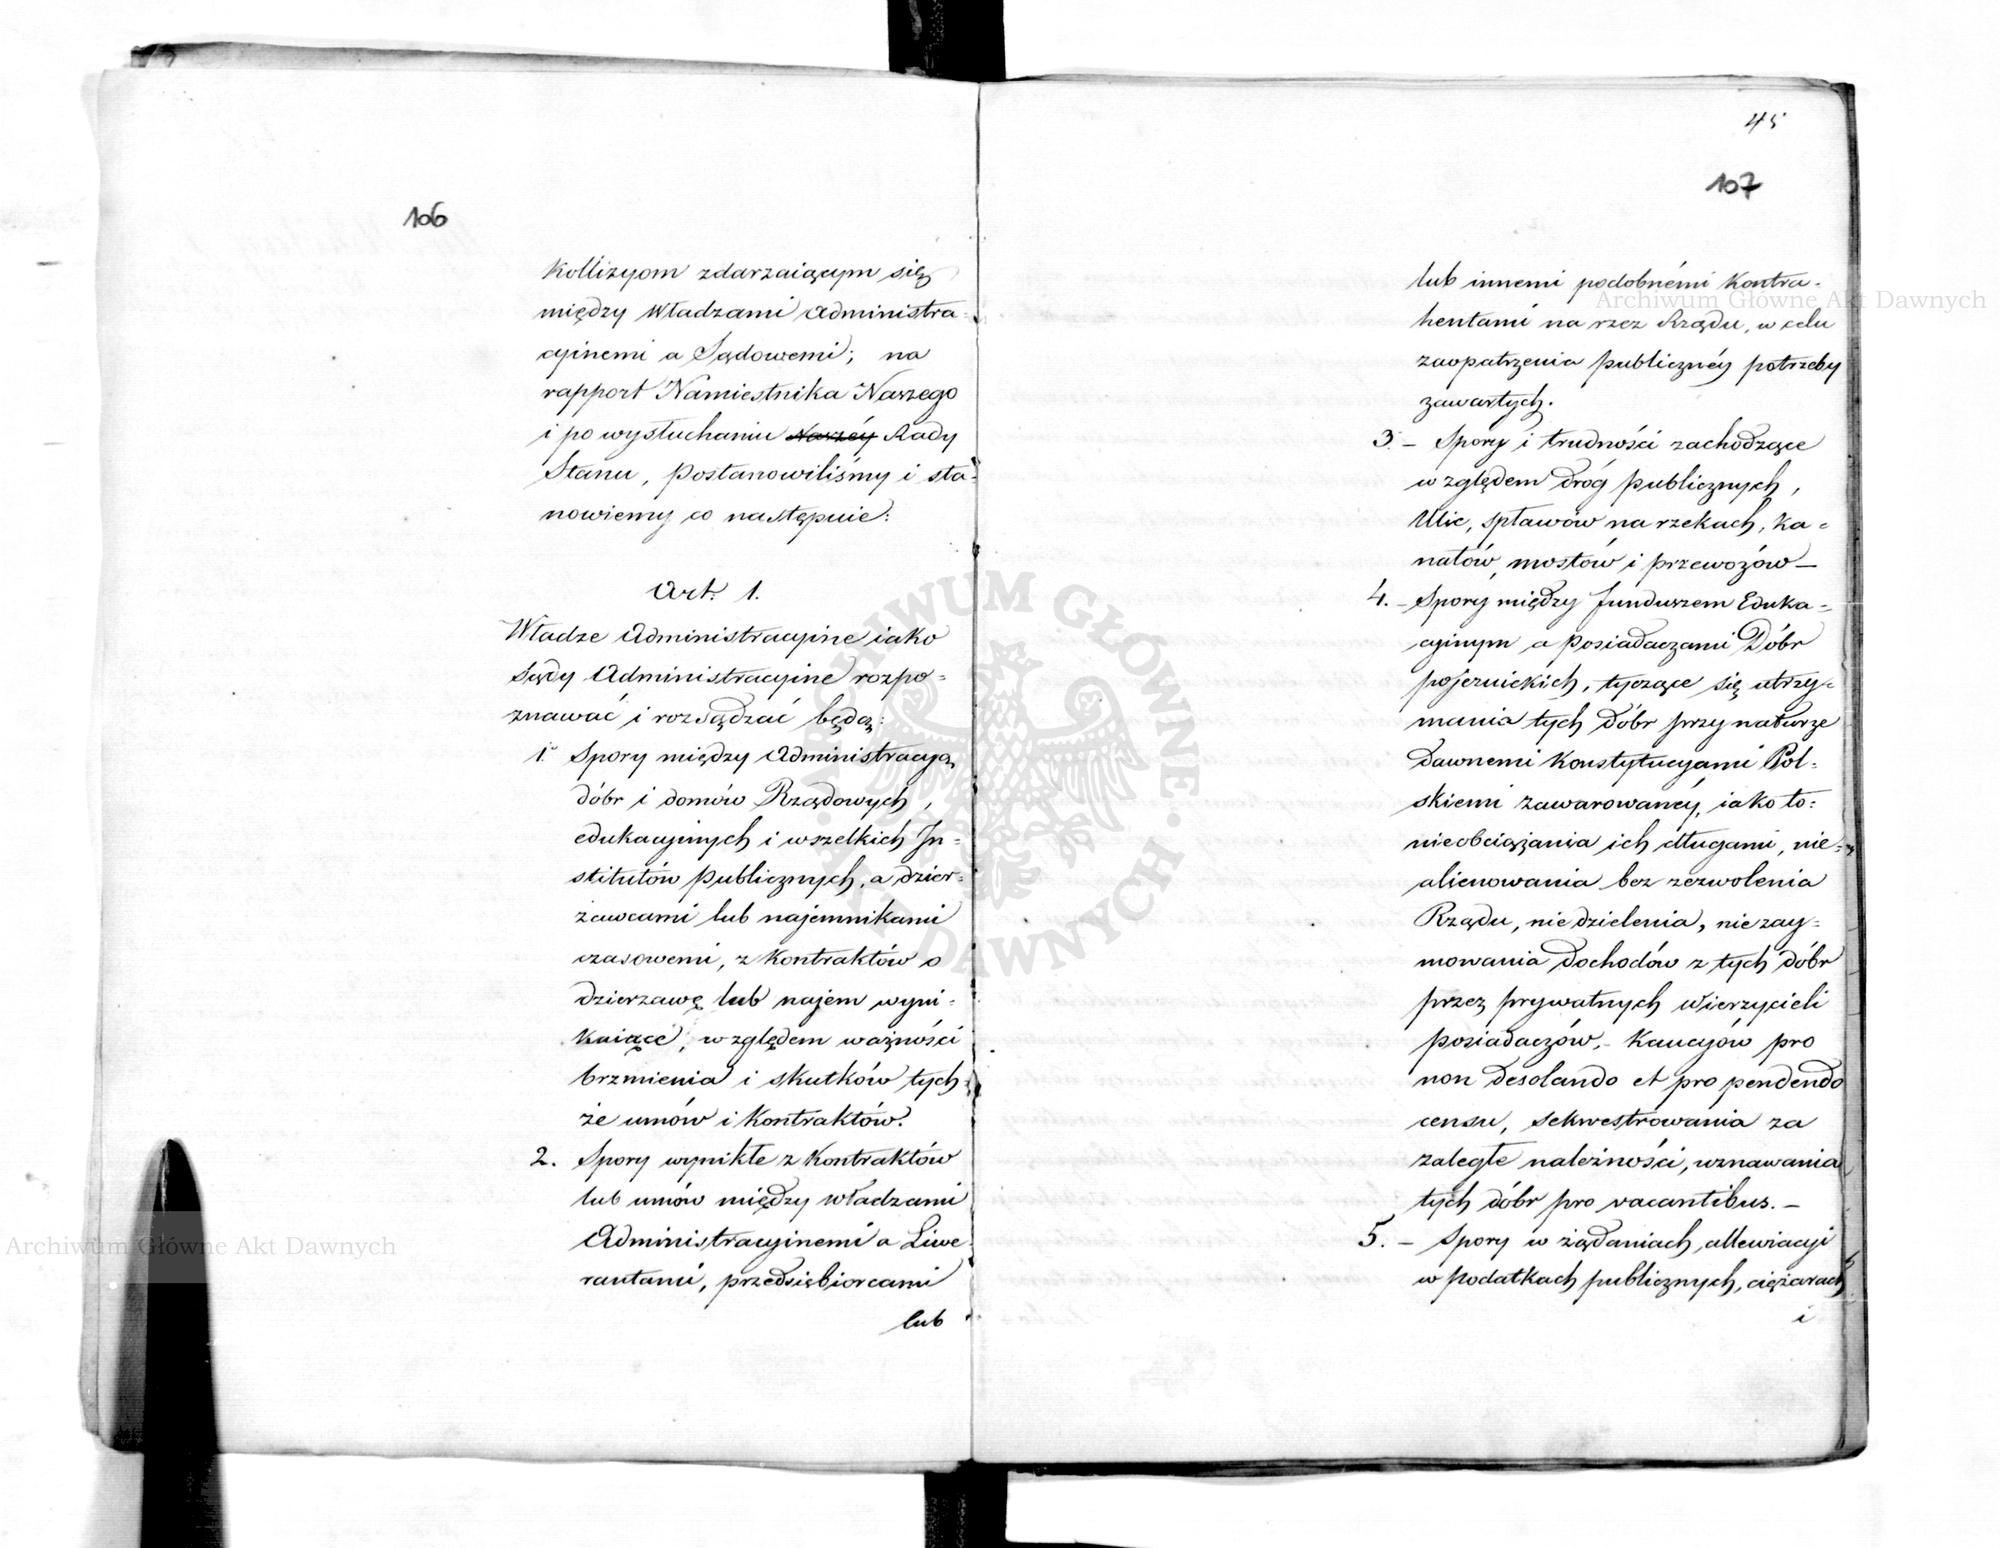 106
Kollizyom zdarzaiącym się
między Władzami Administra-
cyinemi a Sądowemi; na
rapport Namiestnika Naszego
i po wysłuchaniu Naszéy Rady
Stanu, postanowiliśmy i sta-
nowiemy co następuie:
Art. 1.
Władze Administracyine iako
Sądy Administracyine rozpo-
znawać i rozsądzać będą:
1º Spory między Administracyą
dóbr i domów Rządowych,
edukacyinych i wszelkich In-
stitutów publicznych, a dzier-
żawcami lub najemnikami
czasowemi, z kontraktów o
dzierzawę lub najem wyni-
kaiące, względem ważności
brzmienia i skutków tych-
że umów i Kontraktów.
2. Spory wynikłe z Kontraktów
lub umów między władzami
Administracyinemi a Liwe-
rantami, przedsiębiorcami
lub
45
107
lub innemi podobnémi Kontra-
hentami na rzez Rządu, w celu
zaopatrzenia publicznéy potrzeby
zawartych.
3. - Spory i trudności zachodzące
względem dróg publicznych,
Ulic, spławów na rzekach, ka-
nałów, mostów i przewozów—
4. - Spory między funduszem Eduka-
cyinym a posiadaczami Dóbr
pojezuickich, tyczące się utrzy-
mania tych dóbr przy naturze
dawnemi Konstytucyami Pol-
skiemi zawarowanéy, iako to:
nieobciążania ich długami, nie-
alienowania bez zezwolenia
Rządu, nie dzielenia, nie zay-
mowania dochodów z tych dóbr
przez prywatnych Wierzycieli
posiadaczów,- Kaucyów pro
non desolando et pro pendendo
censu, sekwestrowania za
zaległe należności, uznawania
tych dóbr pro vacantibus. —
5. - Spory w żądaniach, allewiacyi
w podatkach publicznych, ciężarach
i
Archiwum Główne Akt Dawnych
Archiwum Główne Akt Dawnych
ARCHIWUM GŁÓWNE AKT DAWNYCH